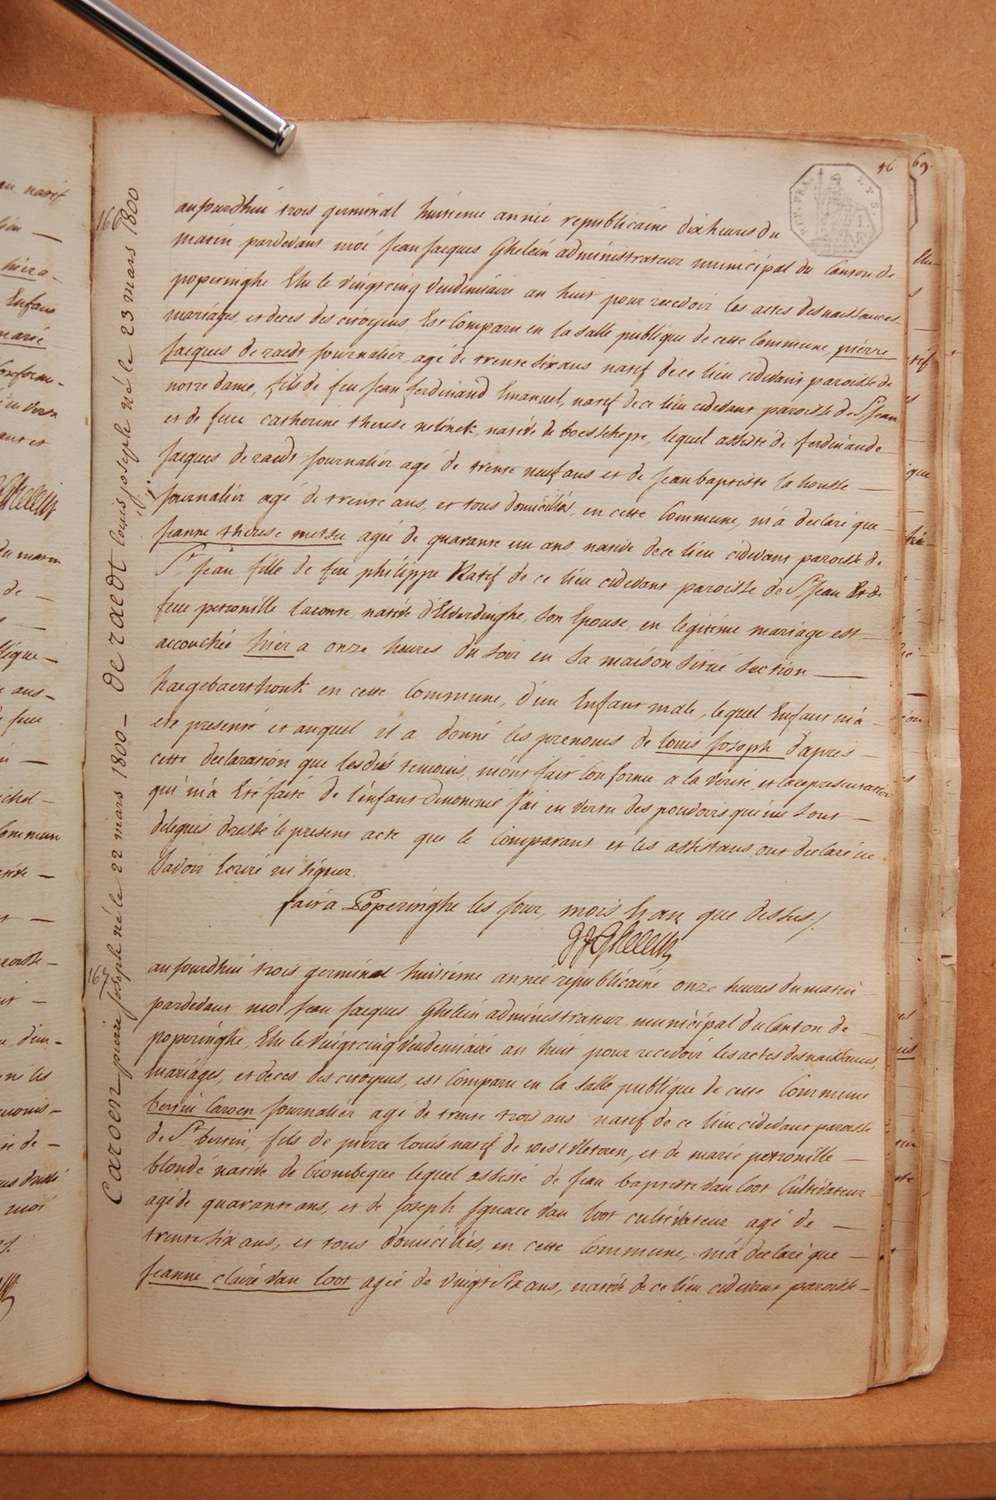 46
69.
REP. FRA.
aujourdhui trois germinal huitieme année republicaine dix heures du
matin pardevant moi Jean Jacques Ghelein administrateur municipal du Canton de
poperinghe Elu le vingt cinq vendemiaire an huit pour recevoir les actes des naissances
mariages et deces des citoyens Est Comparu en la salle publique de cette Commune pierre
Jacques de raedt journalier agé de trente six ans natif de ce lieu cidevant paroisse de
notre dame, fils de feu Jean ferdinand Emanuel, natif de ce lieu cidevant paroisse de St Jean
et de feue catherine therese natïve de boesschepe, lequel assisté de ferdinande
Jacques de raedt journalier agé de trente neuf ans et de Jean baptiste la housse —
journalier agé de trente ans, et tous domiciliés, en cette Commune, m'a declaré que
jeanne therese metsu agée de quarante un ans native de ce lieu cidevant paroisse de
St Jean fille de feu philippe Natif de ce lieu cidevant paroisse de St Jean Et de
feue petronille laconte native d'Elverdinghe, son Epouse en legitime mariage est —
accouchée hier a onze heures du soir en sa maison sitrue section —
haegebaerthouk en cette Commune, d'un Enfant male, lequel Enfant m'a —
eté presenté et auquel il a donné les prenoms de louis joseph d'apres —
cette declaration que les dits temoins, m'ont fait conforme a la verité, et la representation
qui m'a Eté faite de l'enfant denommé J'ai en vertu des pouvoirs qui me sont —
delegués dressé le present acte que le Comparant et les assistans ont declaré ne
savoir Ecrire ni signer.
fait a Poperinghe les jour, mois Et an que dessus /.
JJ Ghelein
aujourdhui trois germinal huitieme année republicaine onze heures du matin
pardevant moi Jean Jacques Ghelein administrateur municipal du Canton de —
poperinghe, Elu le vingt cinq vendemiaire an huit pour recevoir les actes des naissances,
mariages, et deces des citoyens, est Comparu en la salle publique de cette Commune
bertin Caroen journalier agé de trente trois ans natif de ce lieu cidevant paroisse
de St bertin, fils de pierre louis natif de westvleteren, et de marie petronille —
blondé native de Crombeque lequel assisté de Jean baptiste van loot Cultivateur
agé de quarante ans, et de Joseph Ignace van loot cultivateur agé de —
trente six ans, et tous domiciliés, en cette Commune, m'a declaré que —
Jeanne claire van loot agée de vingt six ans, native de ce lieu cidevant paroisse —
166
de raedt louis joseph né le 23 mars 1800
167
Caroen pierre joseph né le 22 mars 1800 —